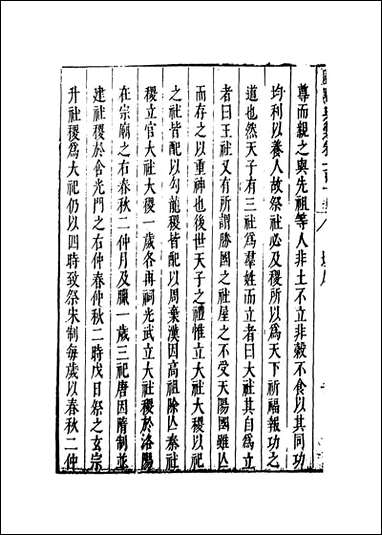 尊而親之與先祖等人非土不立非穀不食以其同功
均利以養人故祭社必及稷所以爲天下祈福報功之
道也然天子有三社爲羣姓而立者曰大社其自爲立
者曰王社又有所謂勝國之社屋之不受天陽國雖亾
而存之以重神也後世天子之禮惟立大社大稷以祀
之社皆配以勾龍稷皆配以周棄漢因高祖除亾秦社
稷立官大社大稷一歲各再祠光武立大社稷於洛陽
在宗廟之右春秋二仲月及臘一歲三祀唐因隋制並
建社稷於含光門之右仲春仲秋二時戊日祭之玄宗
升社稷爲大祀仍以四時致祭宋制每歲以春秋二仲